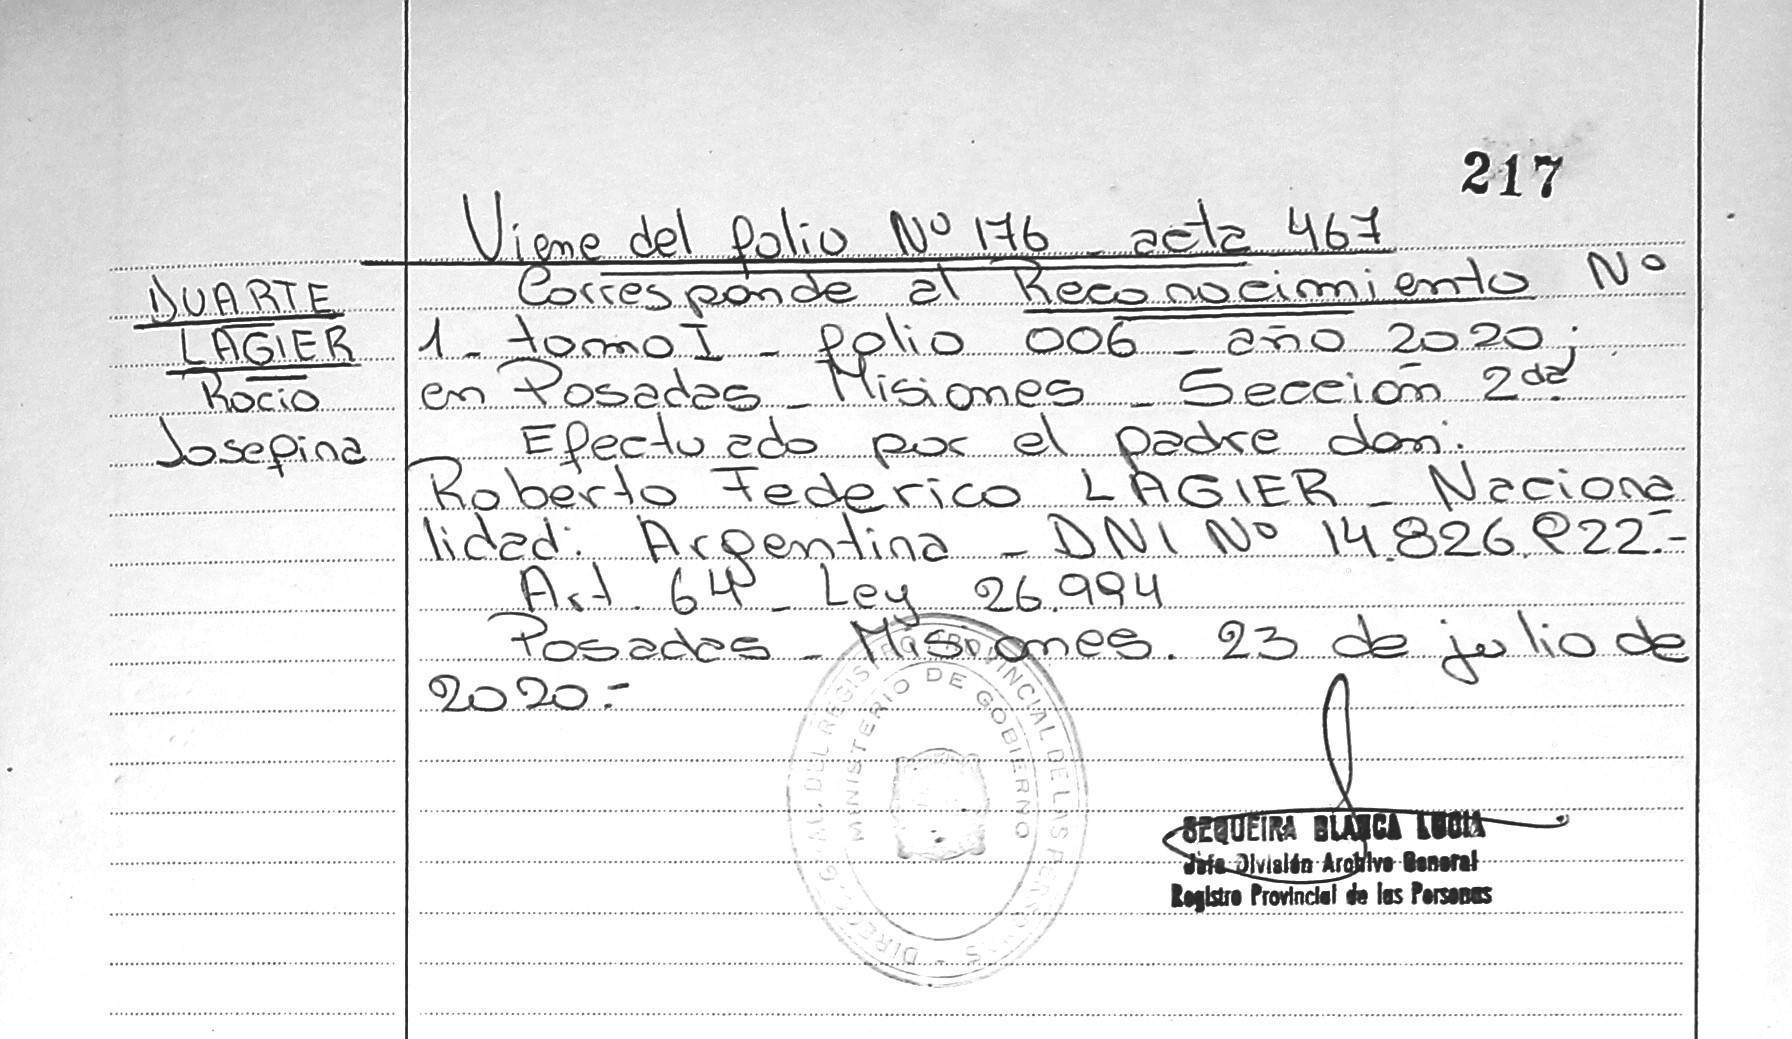 217
Viene del folio Nº 176 - acta 467
DUARTE
LAGIER
Rocío
Josefina
Corresponde al Reconocimiento Nº
1 - tomo I - folio 006 - año 2020;
en Posadas - Misiones - Sección 2da.
Efectuado por el padre don:
Roberto Federico LAGIER - Naciona
lidad: Argentina - DNI Nº 14.826.822.-
Art. 64 - Ley 26.994
Posadas - Misiones. 23 de julio de
2020.-
DEL REGISTRO PROVINCIAL DE LAS PERSONAS
MINISTERIO DE GOBIERNO
SEQUEIRA BLANCA LUCIA
Jefe División Archivo General
Registro Provincial de las Personas